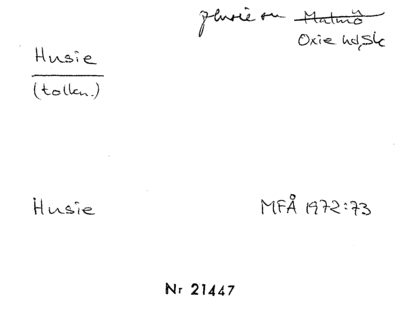 Husie sn Malmö
Oxie hd, Sk
Husie
(tolkn.)
Husie MFÅ 1972:73
Nr 21447